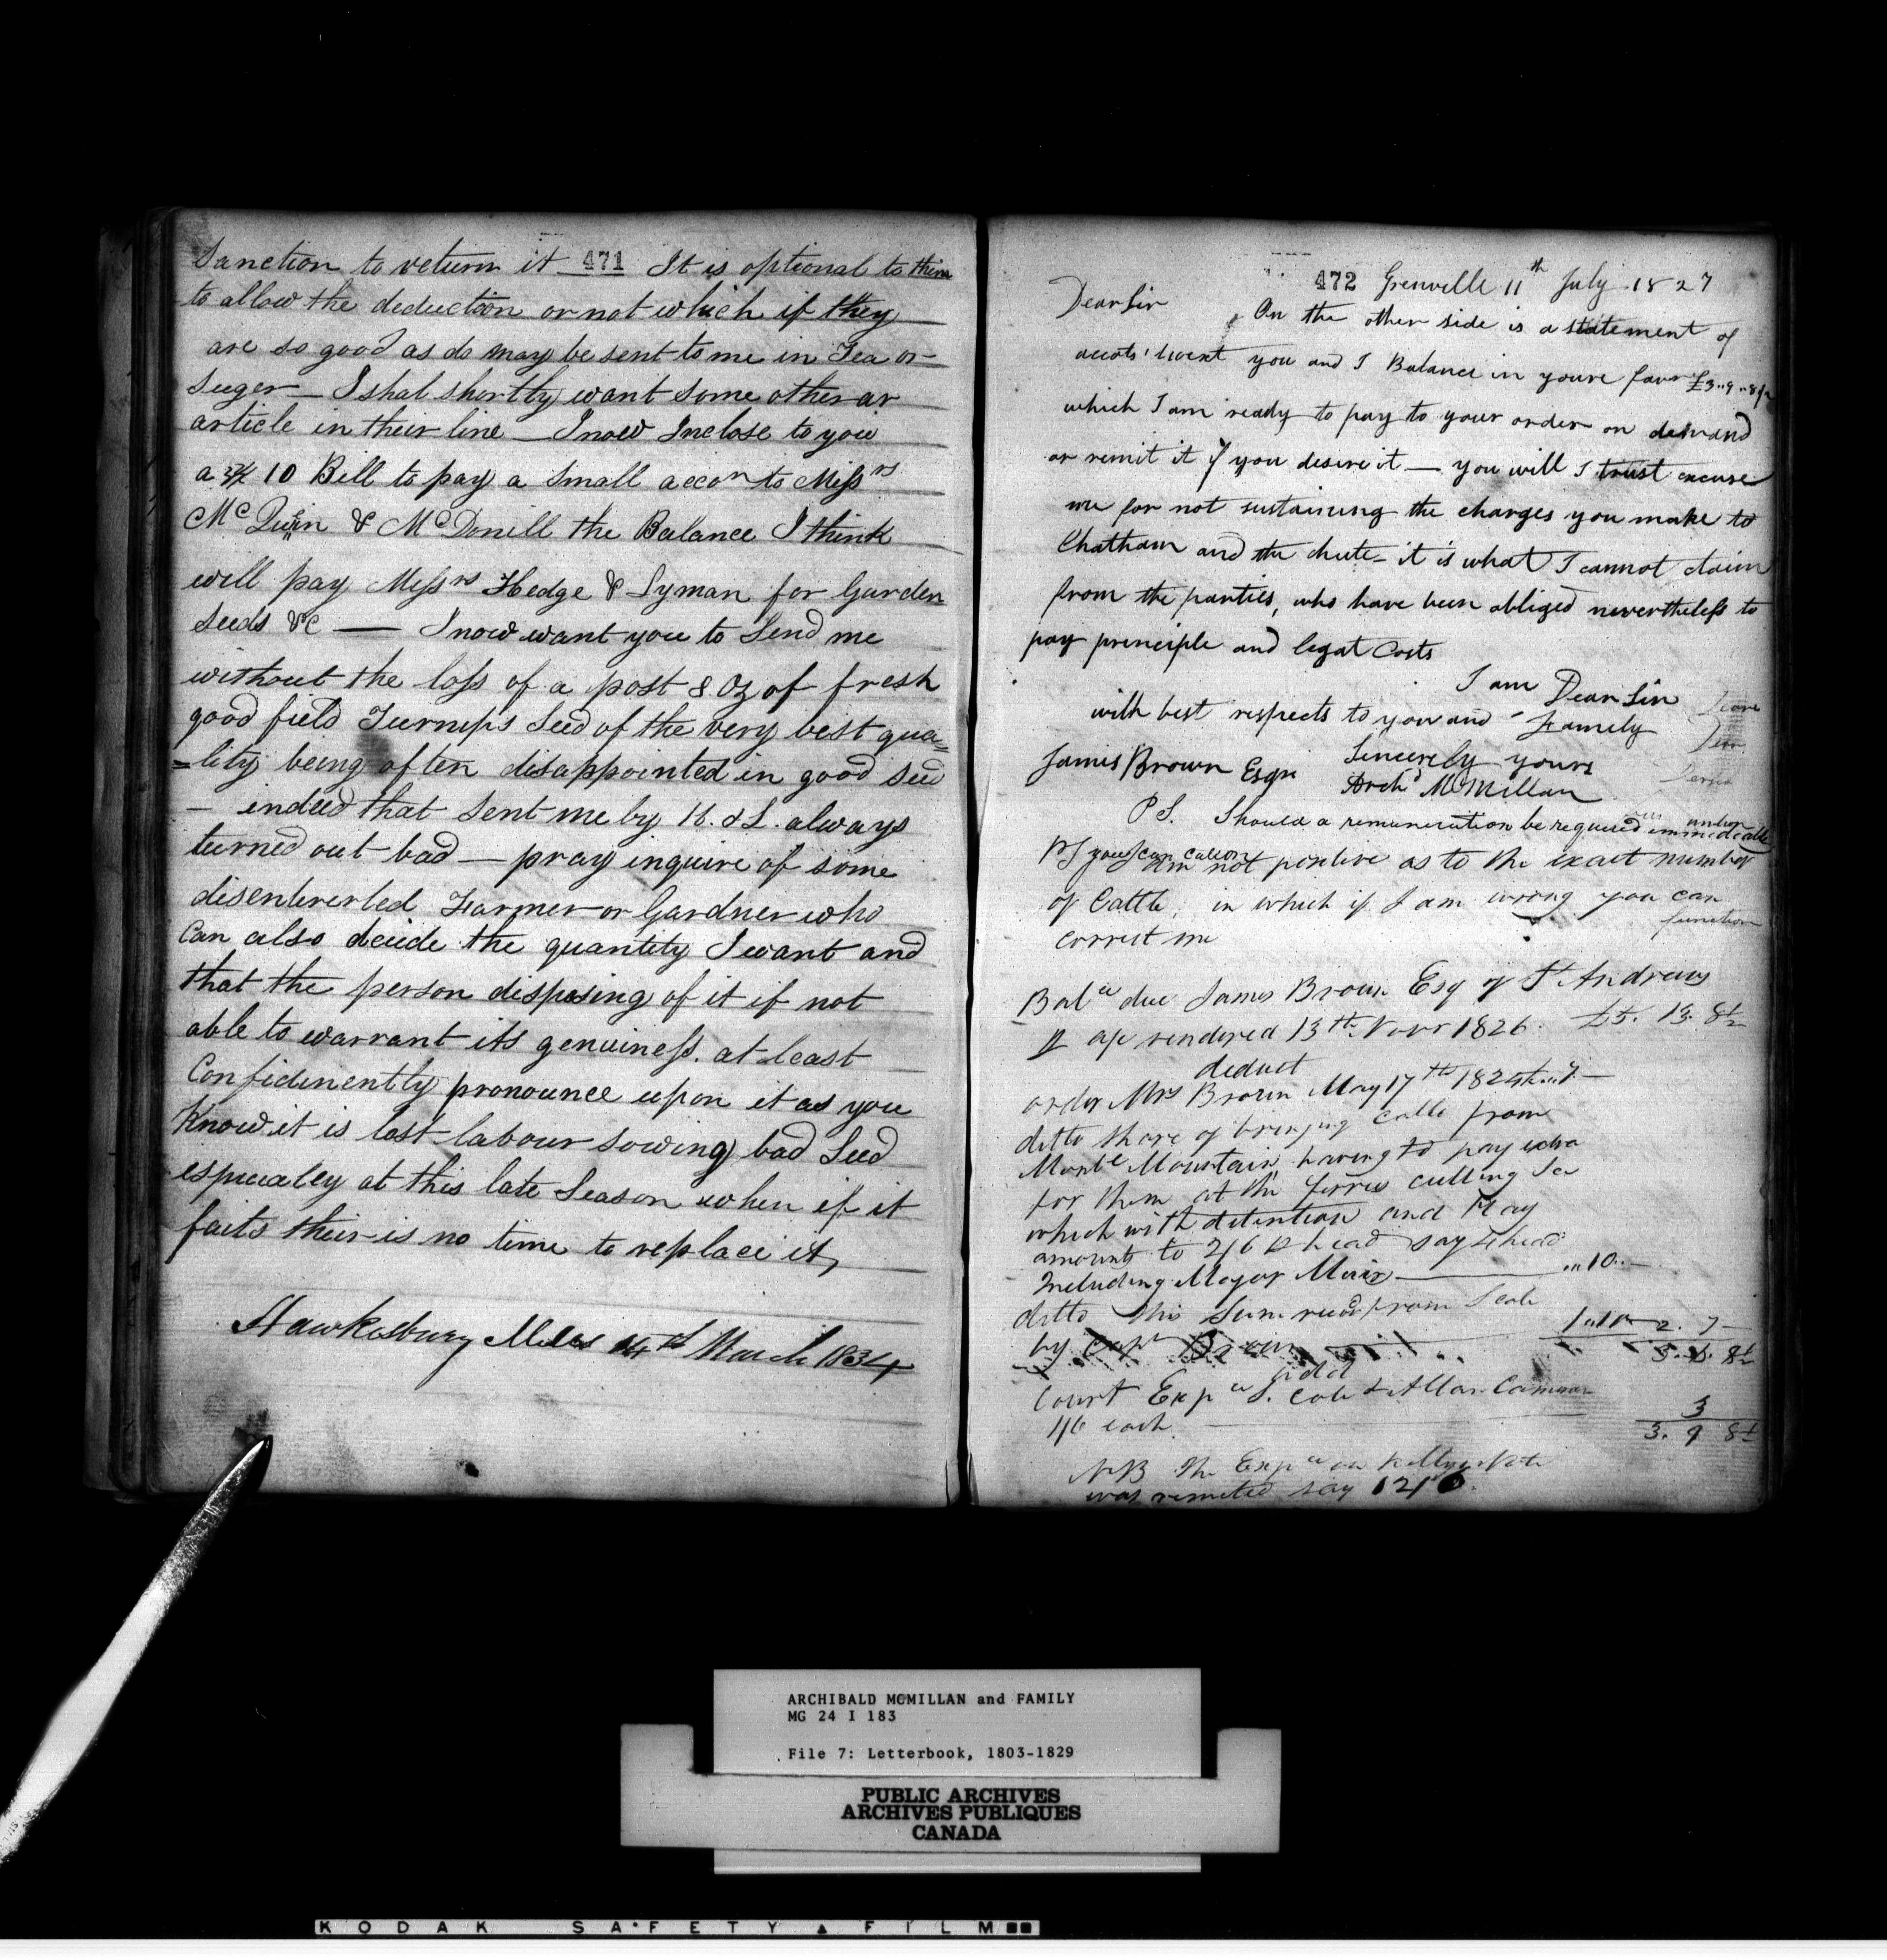 Sanction to return it 471 It is optional to them
to allow the deduction or not which if they
are so good as do may be sent to me in Tea or
Suger — I shal shortly want some other ar
article in their line — I now Inclose to you
a 10 Bill to pay a Small accon to Messrs
McQuin & McDonill the Balance I think
will pay Messrs Hedge & Lyman for Garden
Seeds &c — I now want you to Send me
without the loss of a post 8 Oz of fresh
good field Turnips Seed of the very best qua=
=lity being often disappointed in good seed
— indeed that sent me by H. & L. always
turned out bad — pray inquire of some
disentererted Farmer or Gardner who
Can also decide the quantity I want and
that the person disposing of it if not
able to warrant its genuiness. at least
Confidinently pronounce upon it as you
Know it is lost labour sowing bad Seed
espicealey at this late Season when if it
fails their is no time to replace it,
Hawkesbury Mills 14th March 1834
472 Grenville 11th July 1827
Dear Sir
On the other side is a statement of
accots' twext you and I Balance in youre favr £3..9..8½
which I am ready to pay to your order on demand
or remit it if you desire it — you will I trust excuse
me for not sustaining the charges you make to
Chatham and the chute - it is what I cannot claim
from the parties, who have been obliged nevertheless to
pay principle and legal Costs
I am Dear Sir
with best respects to you and Family
Sincerely yours
James Brown Esqr Archd McMillan
PS. Should a remuneration be required immediatle
PS you can call on
am not positive as to the exact number
of Cattle, in which if I am wrong you can
function
correct me
Balce due James Brown Esq of St Andrews
rendered 13th Novr 1826. £5. 13. 8½
deduct
order Mrs Brown May 17th 1825
ditto share of bringing cattle from
Mountain having to pay extra
for them at the ferries cutting Ice
which with detention and Hay
amounts to 2/6 head say 4 head
Including Major Muir — "10..—
ditto this Sum recd from Cole
by Capt Brown 2. 7 —
3. 6. 8½
add
Court Expce S. Cole & Allan Cameron
1/6 each 3
3. 9 8½
NB the Expce on Kellys Note
was remitted say 12/6
ARCHIBALD McMILLAN and FAMILY
MG 24 I 183
File 7: Letterbook, 1803-1829
PUBLIC ARCHIVES
ARCHIVES PUBLIQUES
CANADA
KODAK SAFETY FILM